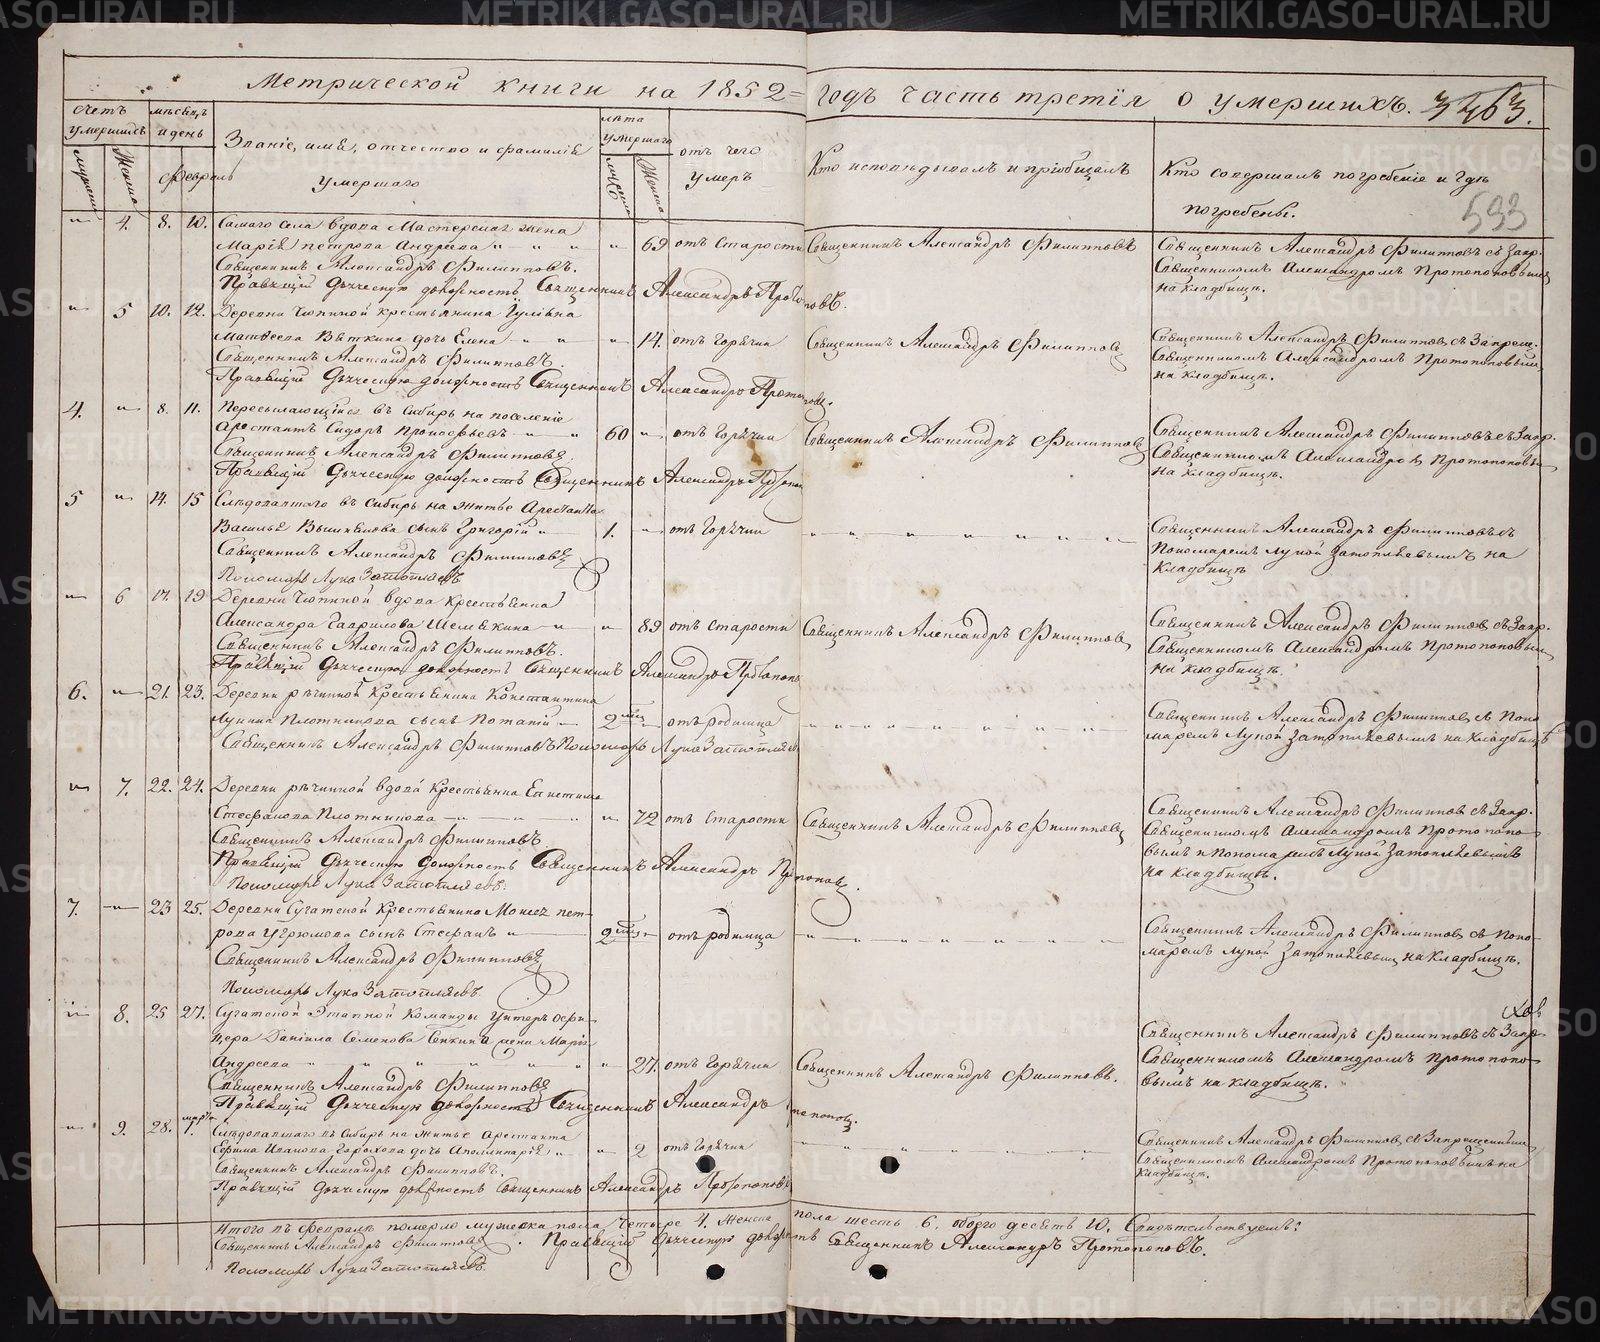 Метрической книги на 1852 = годъ часть третія о умершихъ. 3463.
593
Счетъ умершихъ
мѣсяцъ и день
Февраль
Званіе, имя, отчество и фамилія умершаго
лѣта умершаго
отъ чего умеръ
Кто исповѣдывалъ и пріобщалъ
Кто совершалъ погребеніе и гдѣ погребены.
мужеска
Женска
мужеска
Женска
4. 8. 10. Самаго Села вдова Мастерская жена
Марія петрова Андрѣева 69 отъ Старости Священникъ Александръ Филипповъ
Священникъ Александръ Филипповъ съ Запр.
Священникомъ Александромъ Протопоповымъ
на кладбищѣ.
Священникъ Александръ Филипповъ.
Правящій Дьяческую должность Священникъ Александръ Протопоповъ.
5 10. 12. Деревни Чюпиной крестьянина
Матвеева Вяткина дочь Елена 14. отъ Горячки Священникъ Александръ Филипповъ
Священникъ Александръ Филипповъ съ Запрещ.
Священникомъ Александромъ Протопоповымъ
на кладбищѣ.
Священникъ Александръ Филипповъ.
Правящій Дьяческую должность Священникъ Александръ Протопоповъ.
4. 8. 11. Пересылающійся въ Сибирь на поселеніе
Арестантъ Сидоръ 60 отъ Горячки Священникъ Александръ Филипповъ
Священникъ Александръ Филипповъ съ Запр.
Священникомъ Александромъ Протопоповымъ
на кладбищѣ.
Священникъ Александръ Филипповъ
Правящій Дьяческую должность Священникъ Александръ Протопопов
5 14. 15 Слѣдовавшаго въ Сибирь на житье Арестанта
Василья сынъ Григорій 1. отъ Горячки
Священникъ Александръ Филипповъ съ
Пономаремъ Лукой Затопляевымъ на
Кладбищѣ
Священникъ Александръ Филипповъ
Пономарь Лука Затопляевъ
6 17. 19 Деревни Чюпиной вдова Крестьянка
Александра Гаврилова Шемякина 89 отъ старости Священникъ Александръ Филипповъ
Священникъ Александръ Филипповъ съ Запр.
Священникомъ Александромъ Протопоповым
на кладбищѣ.
Священникъ Александръ Филипповъ.
Правящій Дьяческую должность Священникъ Александръ Протопоп
6. 21. 23. Деревни рѣчинной Крестьянина Константина
Лукина Плотникова сынъ Потапій 2 мѣс отъ родимца
Священникъ Александръ Филипповъ съ Поно
маремъ Лукой Затопляевымъ на кладбищѣ
Священникъ Александръ Филипповъ Пономарь Лука Затопляевъ
7. 22. 24. Деревни рѣчинной вдова Крестьянка
Стефанова Плотникова 72 отъ Старости Священникъ Александръ Филипповъ
Священникъ Александръ Филипповъ съ Запр.
Священникомъ Александромъ Протопопо-
вымъ и Пономаремъ Лукой Затопляевымъ
на кладбищѣ.
Священникъ Александръ Филипповъ.
Правящій Дьяческую должность Священникъ Александръ Протопоповъ.
Пономарь Лука Затопляевъ.
7. 23 25. Деревни Сугатской Крестьянина Моисея пет-
рова Угрюмова сынъ Стефанъ 2 мѣс. отъ родимца
Священникъ Александръ Филипповъ съ Поно-
маремъ Лукой Затопляевым на Кладбищѣ.
Священникъ Александръ Филипповъ
Пономарь Лука Затопляевъ.
8. 25 27. Сугатской Этапной Команды Унтеръ офи-
цера Даніила Семенова жена Марія
Андреева 27. отъ Горячки Священникъ Александръ Филипповъ.
Священникъ Александръ Филипповъ съ Запр
Священникомъ Александромъ Протопопо-
вымъ на кладбищѣ.
Священникъ Александръ Филипповъ
Правящій Дьяческую должность Священникъ Александръ Протопоповъ.
9. 28. марта 1. Слѣдовавшаго въ Сибирь на житье Арестанта
Ефима Иванова Горохова дочь Аполлинарія 2 отъ Горячки
Священникъ Александръ Филипповъ съ Запрещеннымъ
Священникомъ Александромъ Протопоповымъ на
кладбищѣ.
Священникъ Александръ Филипповъ.
Правящій Дьяческую должность Священникъ Александръ Протопоповъ
Итого въ Февралѣ померло мужеска пола четыре 4. Женска пола шесть 6. обоего десять 10. Свидѣтельствуемъ:
Священникъ Александръ Филипповъ. Правящій Дьяческую должность Священникъ Александръ Протопоповъ.
Пономарь Лука Затопляевъ.
METRIKI.GASO-URAL.RU